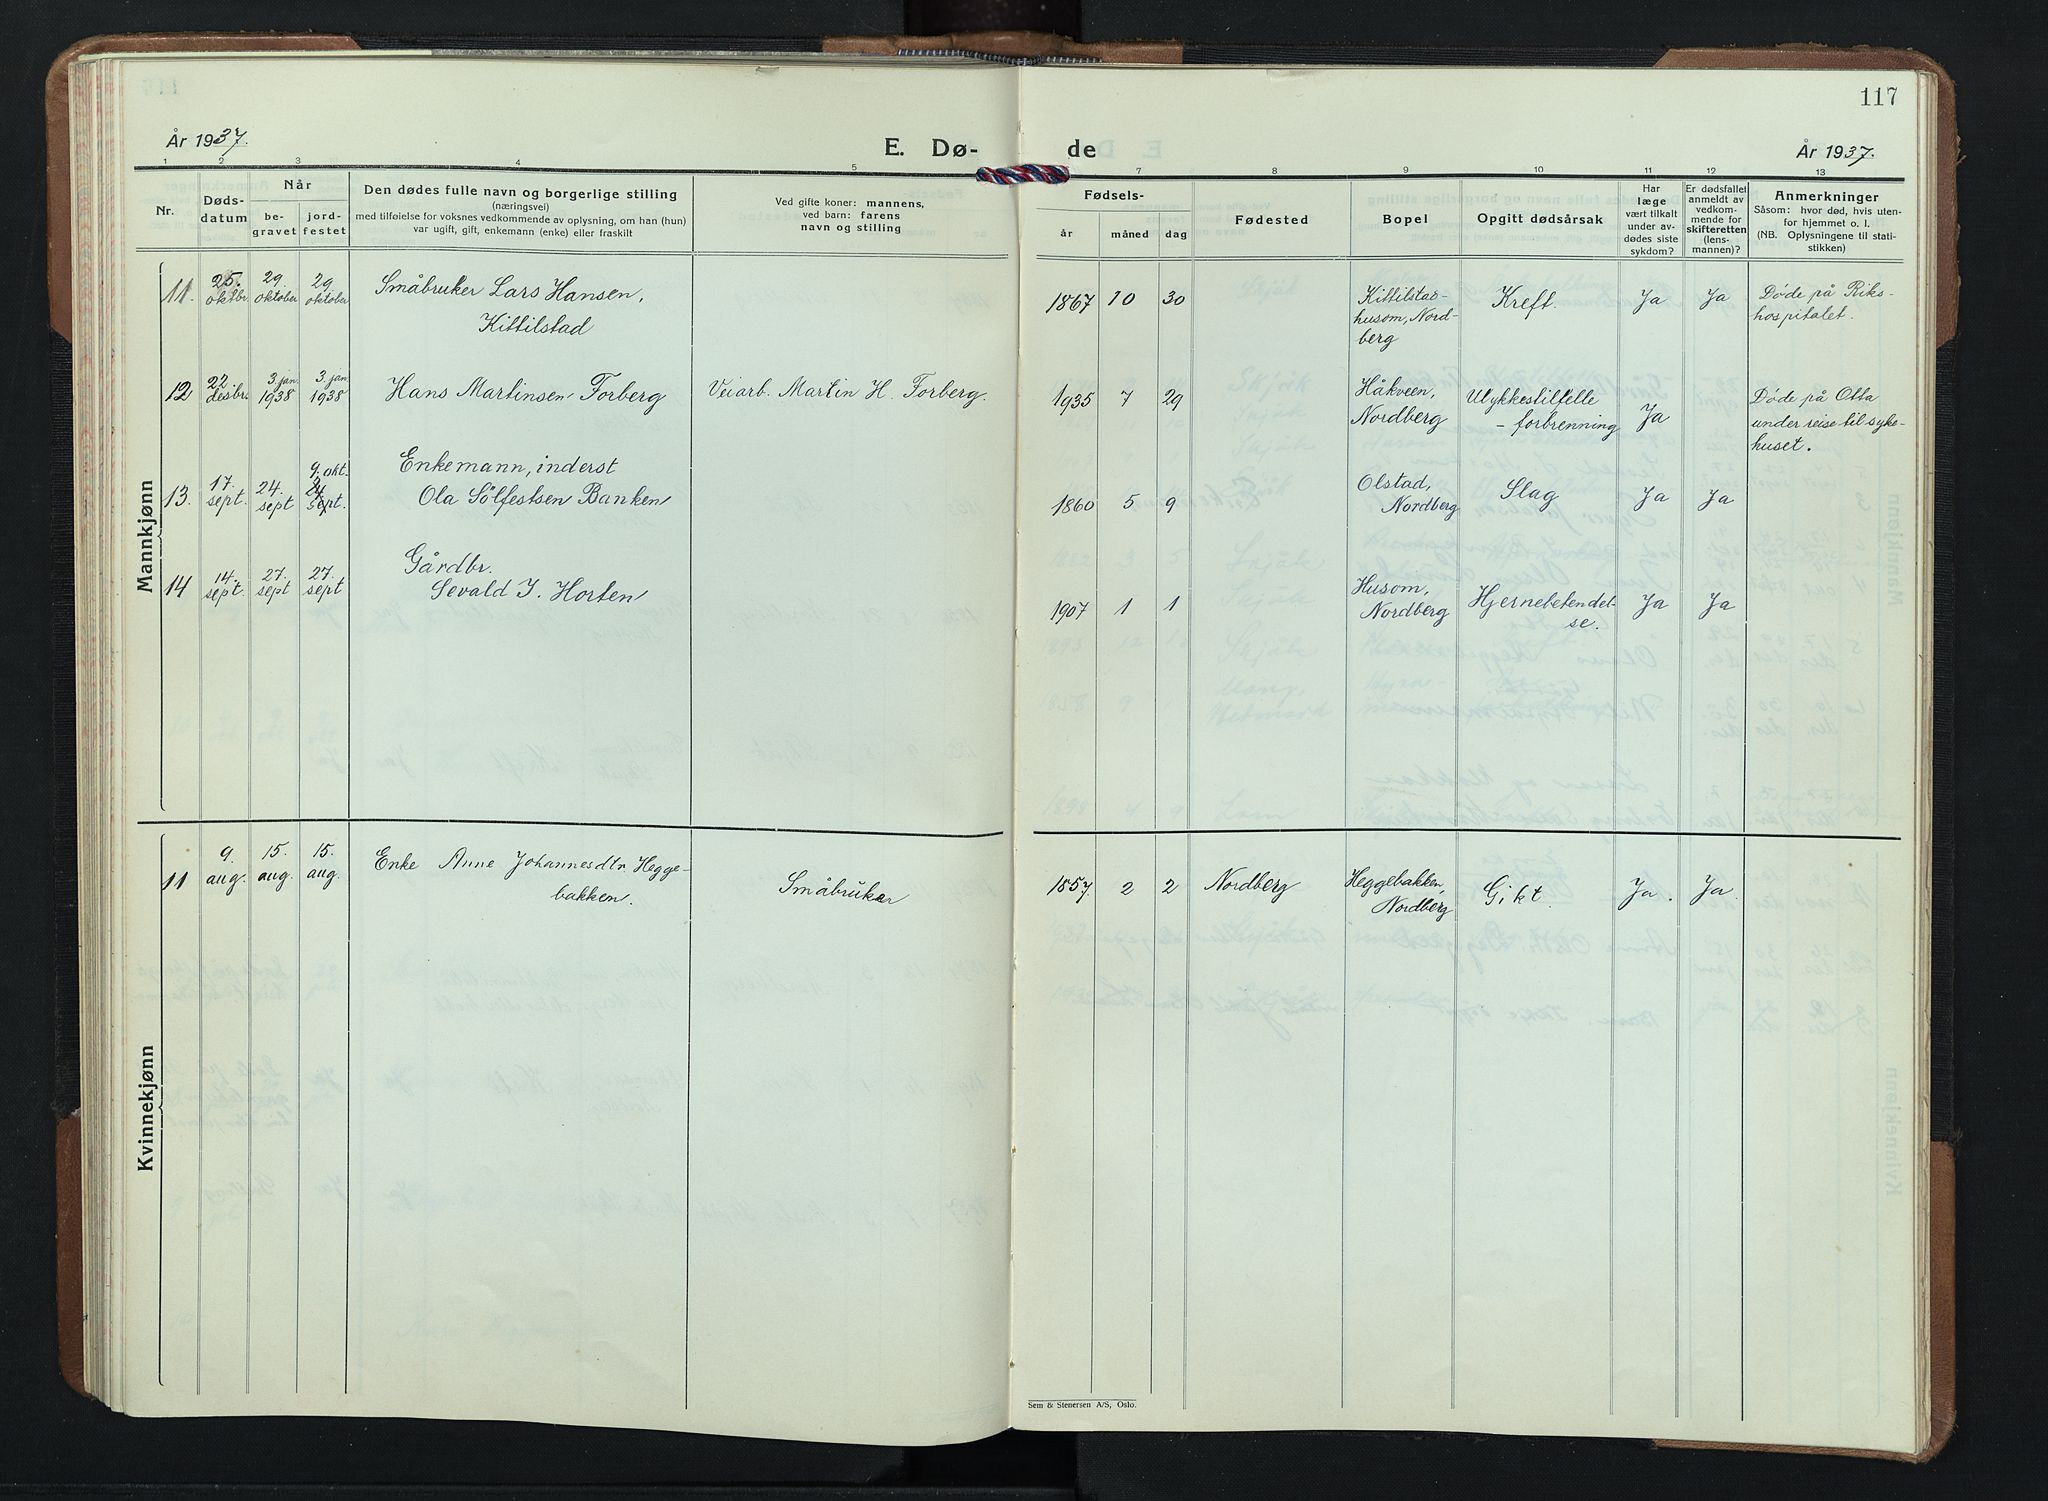 117
År 1937.
E. Dø-
de
År 1937.
1 2 3 4 5 7 8 9 10 11 12 13
Nr.
Døds-
datum
Når
be-
gravet
jord-
festet
Den dødes fulle navn og borgerlige stilling
(næringsvei)
med tilføielse for voksnes vedkommende av oplysning, om han (hun)
var ugift, gift, enkemann (enke) eller fraskilt
Ved gifte koner: mannens,
ved barn: farens
navn og stilling
Fødsels-
år
måned
dag
Fødested
Bopel
Opgitt dødsårsak
Har
læge
vært tilkalt
under av-
dødes siste
sykdom?
Er dødsfallet
anmeldt av
vedkom-
mende for
skifteretten
(lens-
mannen)?
Anmerkninger
Såsom: hvor død, hvis uten-
for hjemmet o. l.
(NB. Oplysningene til stati-
stikken)
Mannkjønn
11. 25. oktbr. 29. oktober 29 oktober Småbruker Lars Hansen,
Kittilstad
1867 10 30 Kittilstad-
husom, Nord-
berg
Kreft. Ja Ja Døde på Riks-
hospitalet.
12. 22 desbr. 3. jan. 1938 3. jan. 1938 Hans Martinsen Forberg Veiarb. Martin H. Forberg.
1935 7 29 Håkveen,
Nordberg
Ulykkestilfelle
- forbrenning
Ja Døde på Otta
under reise til syke-
huset.
13. 17. sept. 24. sept 9. okt. 24 sept. Enkemann, inderst
Ola Sølfestsen Banken
1860 5 9 Olstad,
Nordberg
Slag Ja Ja
14 14. sept. 27. sept 27. sept Gårdbr.
Sevald I. Horten
1907 1 1 Husom,
Nordberg
Hjernebetendel-
se.
Ja Ja
Kvinnekjønn
11 9. aug. 15. aug. 15. aug. Enke Anne Johannesdtr. Hegge-
bakken.
Småbruker
1857 2 2 Nordberg Heggebakken,
Nordberg
Gikt. Ja. Ja.
Sem & Stenersen A/S, Oslo.